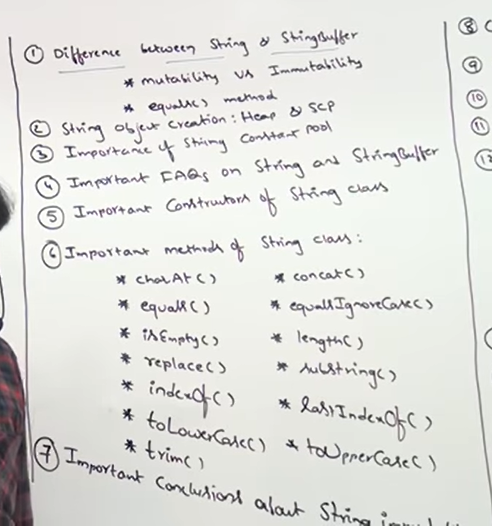 ① Difference between String & StringBuffer
* mutability vs Immutability
* equals() method
② String Object Creation: Heap & SCP
③ Importance of String Constant pool
④ Important FAQs on String and StringBuffer
⑤ Important Constructors of String class
⑥ Important methods of String class:
* charAt() * concat()
* equals() * equalsIgnoreCase()
* isEmpty() * length()
* replace() * substring()
* indexOf() * lastIndexOf()
* toLowerCase() * toUpperCase()
* trim()
⑦ Important Conclusions about String
⑧
⑨
⑩
⑪